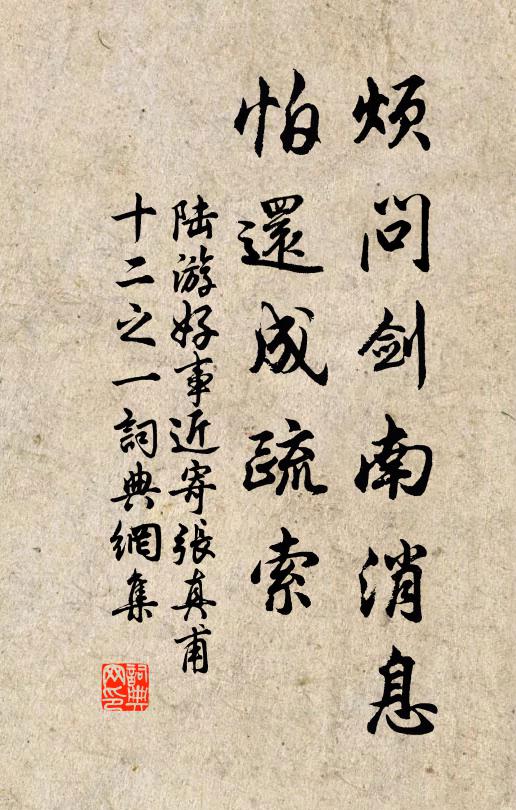 烦问剑南消息
怕還成疏索
陆游好事近寄張真甫
十二之一詞典網集
詞典网印